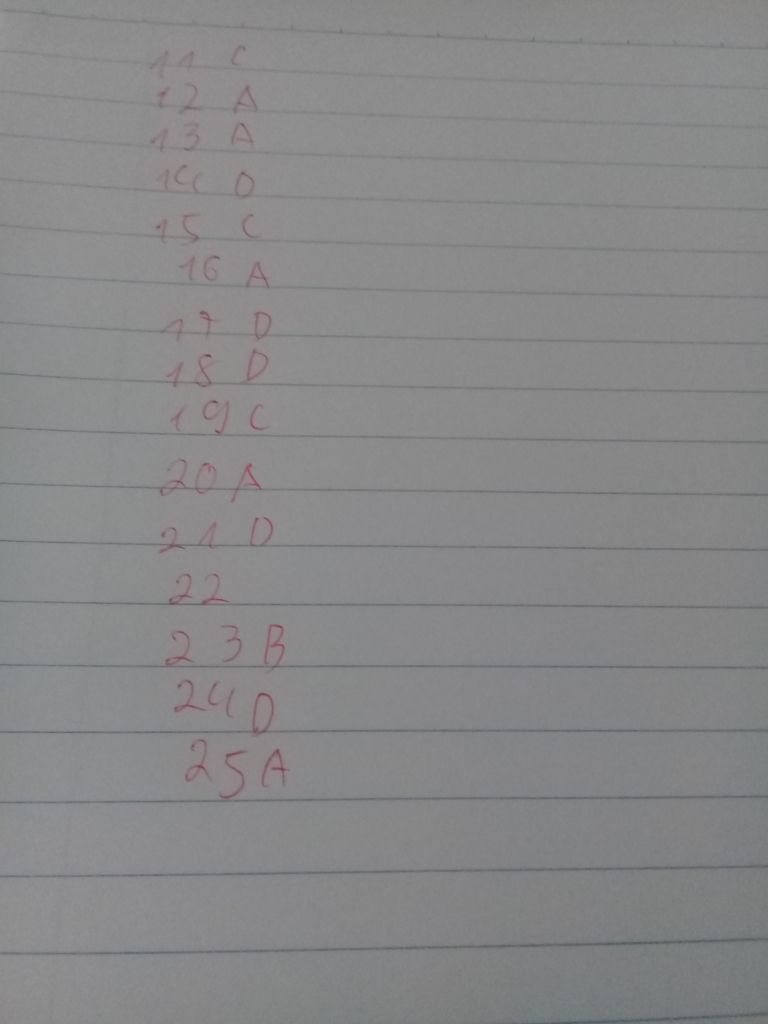 11 C
12 A
13 A
14 D
15 C
16 A
17 D
18 D
19 C
20 A
21 D
22
23 B
24 D
25 A